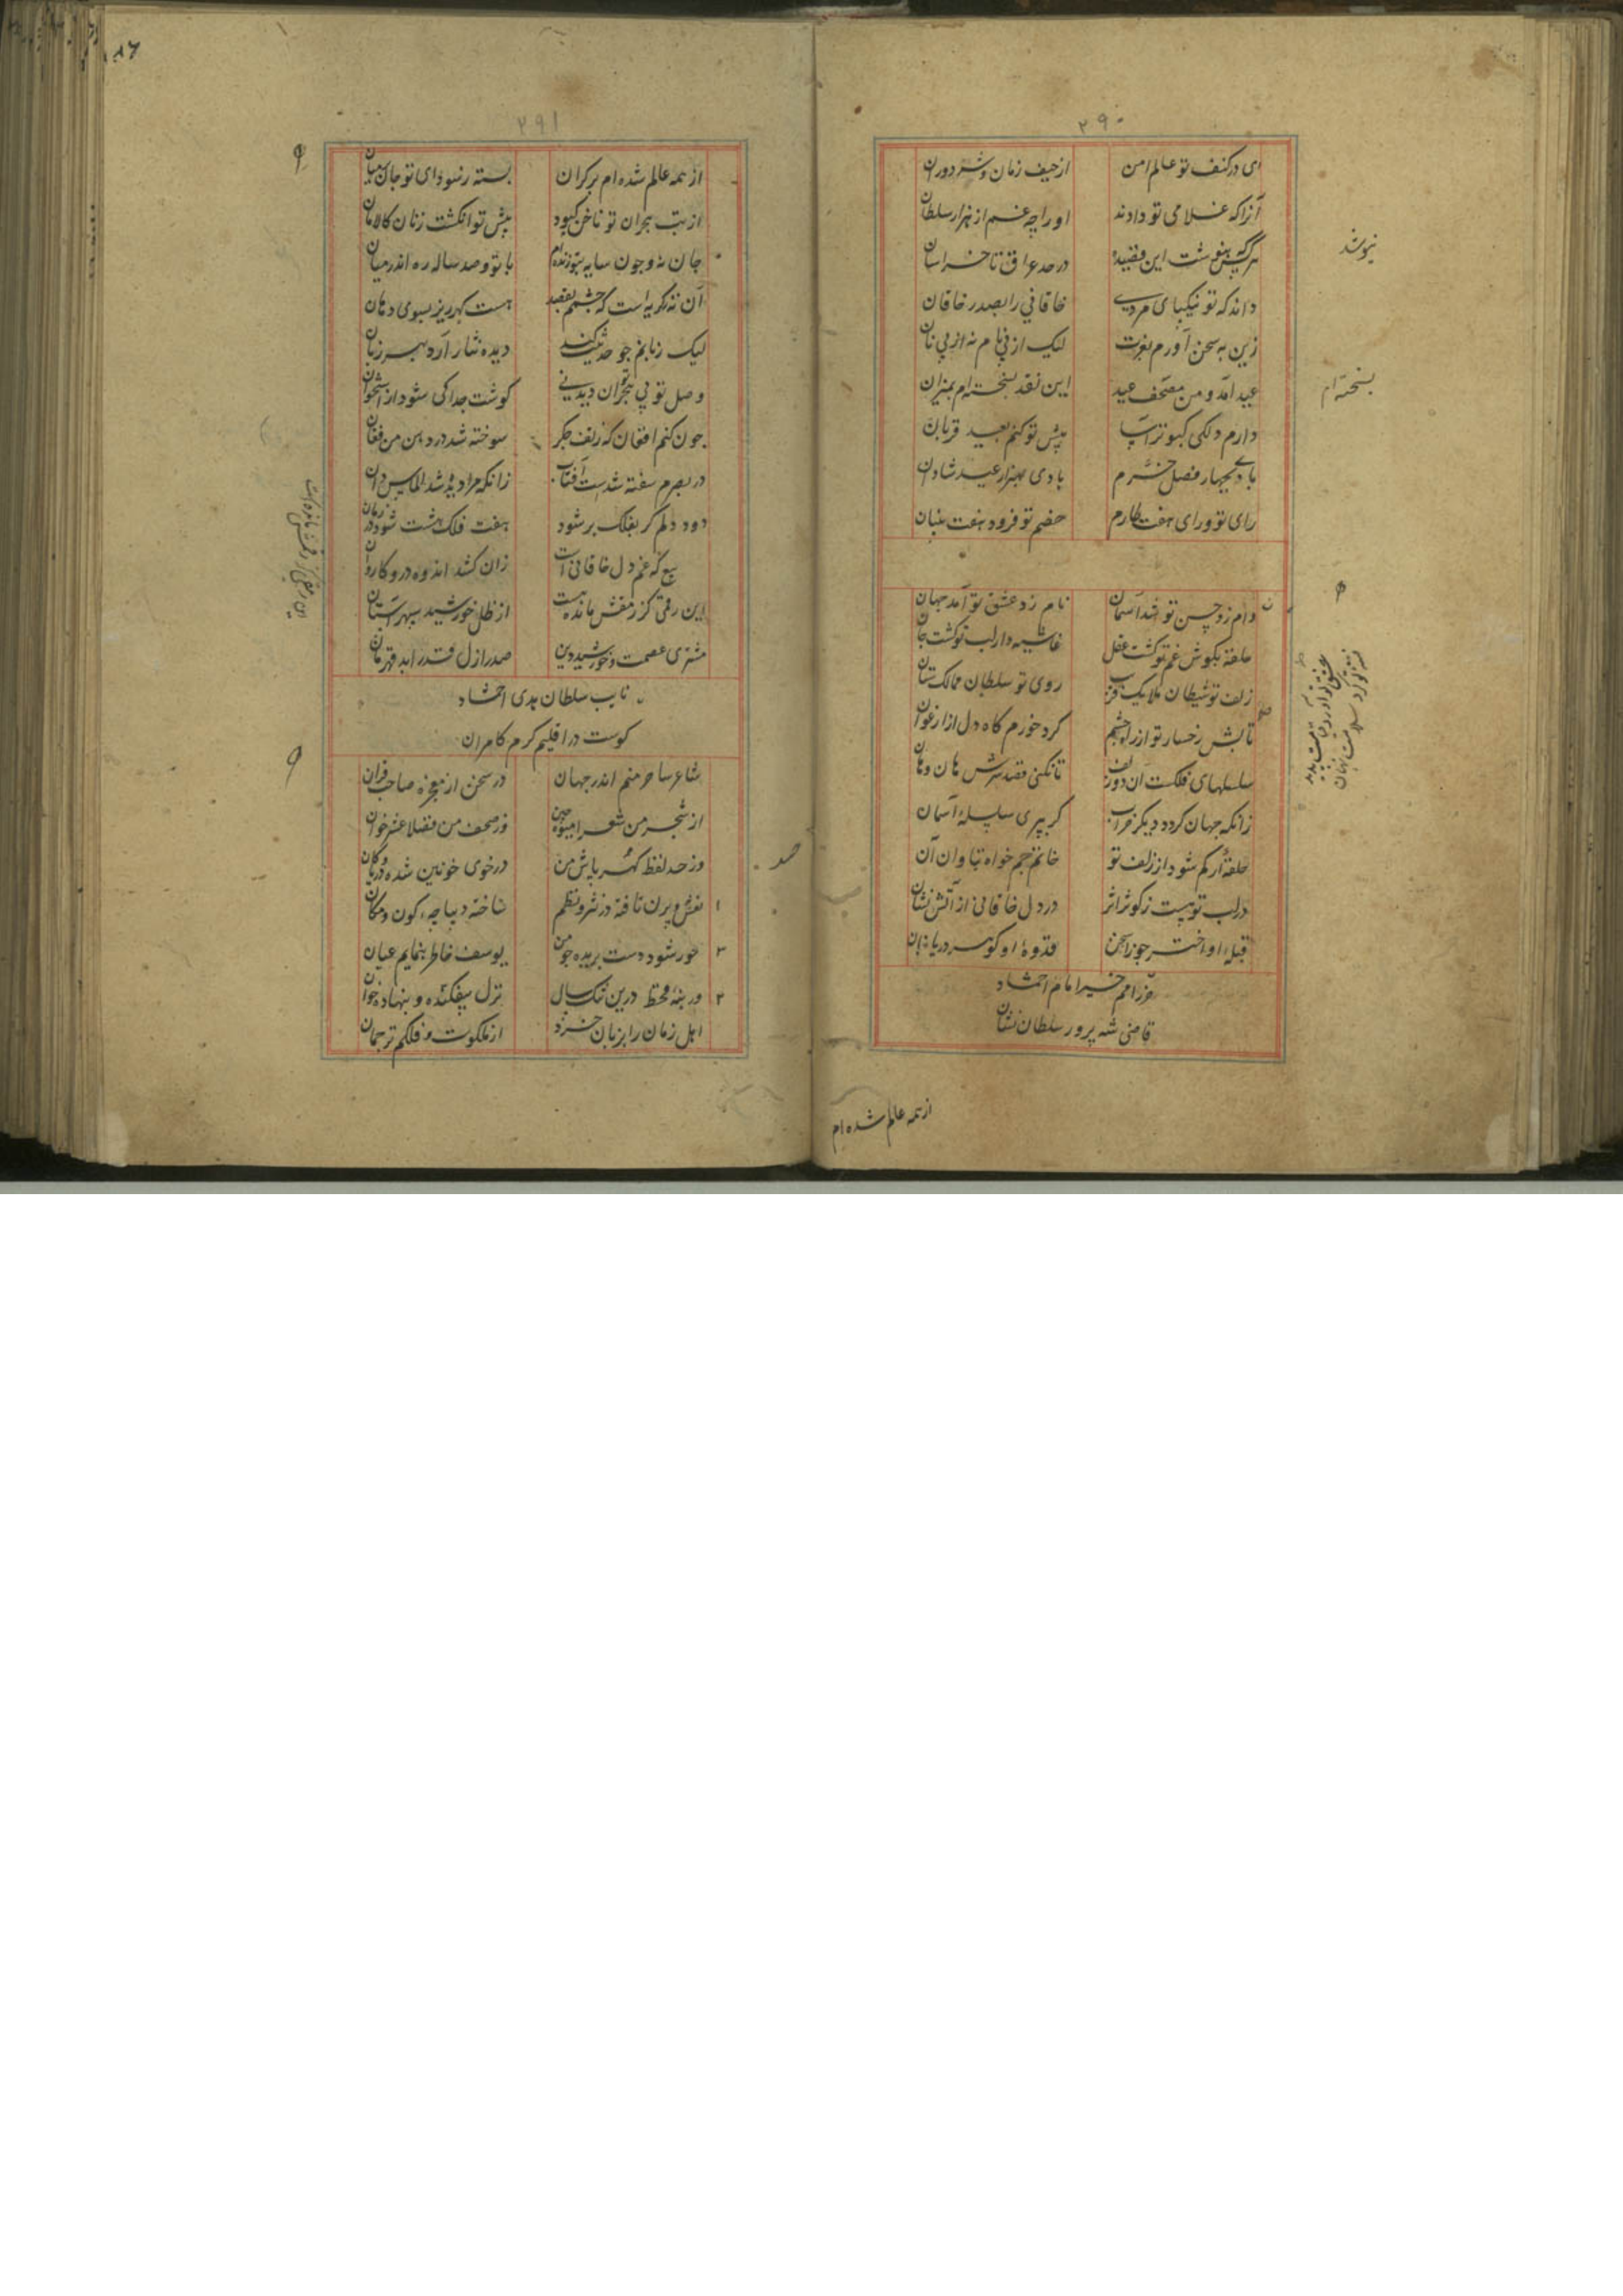 ۲۹۰
ای در کنف تو عالم امن از حیف زمان و شر دوران
آنرا که غلامی تو دادند او را چه غم از هزار سلطان
هر کس بنوشت این قصیده در حد عراق تا خراسان
داند که تو نیکپای مردی خاقانی را بصدر خاقان
زین به سخن آورم بغرت لیک از پی نام نه از پی نان
عید آمد و من مصحف عید این نقد بسخته‌ام بمیزان
دارم دلکی کبوترآسا پیش تو کنم بعید قربان
بادی بچهار فصل خرم بادی بهزار عید شادان
رای تو ورای هفت طارم خصم تو فرود هفت بنیان
دام زد حسن تو شد آسمان نام زد عشق تو آمد جهان
حلقه بگوش غم تو گشت عقل غاشیه دار لب تو گشت جان
زلف تو شیطان ملایک فریب روی تو سلطان ممالک ستان
تابش رخسار تو از راه چشم کرد خورم گاه دل از ارغوان
سلسلهای فلکست آن دو زلف تا نکنی قصد سرش هان و هان
زانکه جهان گردد دیگر خراب گر ببری سلسله آسمان
حلقه‌ار کم شود از زلف تو خاتم جم خواه بتاوان آن
در لب تو هست ز کوثر اثر در دل خاقانی از آتش نشان
قبله او اختر جوزا سخن قدوه او گوهر دریا زبان
فخر امم خیر امام احتشاد
قاضی شه پرور سلطان نشان
نیوشد
بسخته‌ام
عشق تو آورد قیامت پدید
فتنه تو کرد سلامت نهان
از همه عالم شده‌ام
۲۹۱
از همه عالم شده‌ام بر کران بسته ز سودای تو جان بر میان
از تب هجران تو ناخن کبود پیش تو انگشت زنان کالامان
جان نه و چون سایه بتو زنده‌ام با تو و صد ساله ره اندر میان
آن نه ز گریه است که چشمم بقصد هست گهرریز بسوی دهان
لیک زبانم چو حدیثت کند دیده نثار آرد بهر زبان
وصل تو بی هجر توان دید نی گوشت جدا کی شود از استخوان
چون کنم افغان که ز تف جگر سوخته شد در دهن من فغان
در بصرم سفته شدست آفتاب زانکه مرا دیده شد الماس دان
دود دلم گر بفلک بر شود هفت فلک هشت شود در زمان
پیع که غم دل خاقانی است زان کشد اندوه در و کاروان
این رمقی کز رمقش مانده است از ظل خورشید سپهر آستان
مشتری عصمت و خورشید دین صدر ازل قدر ابد قهرمان
نایب سلطان هدی احتشاد
کوست در اقلیم کرم کامران
شاعر ساحر منم اندر جهان در سخن از معجزه صاحب قران
از شجر من شعرا میوه چین وز صحف من فضلا عشر خوان
وز حد لفظ گهر پاش من در خوی خونین شده دریا و کان
نعش و پرن تافته در نثر و نظم ساخته دیباچه کون و مکان
حور شود دست بریده چو من یوسف خاطر بنمایم عیان
در بنه قحط درین تنگ سال نزل بیفکنده و بنهاده خوان
اهل زمان را بزبان خرد از ملکوت و فلکم ترجمان